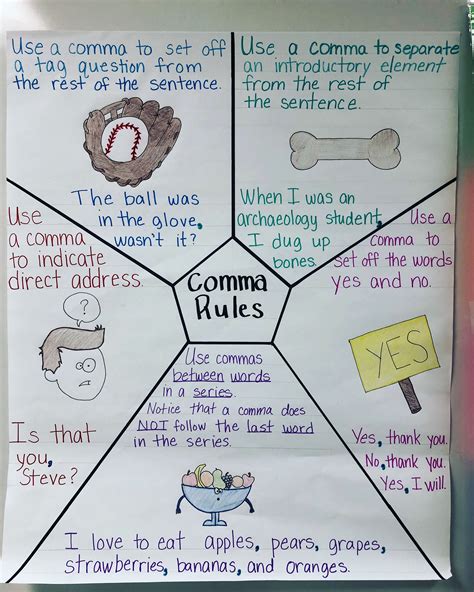 Use a comma to set off
a tag question from
the rest of the sentence.
The ball was
in the glove,
wasn't it?
Use a comma to separate
an introductory element
from the rest of
the sentence.
When I was an
archaeology student,
I dug up
bones.
Use
a comma
to indicate
direct address.
?
Is that
you,
Steve?
Comma
Rules
Use a
comma to
set off the words
yes and no.
YES
Yes, thank you.
No, thank you.
Yes, I will.
Use commas
between words
in a series.
Notice that a comma does
NOT follow the last word
in the series.
I love to eat apples, pears, grapes,
strawberries, bananas, and oranges.